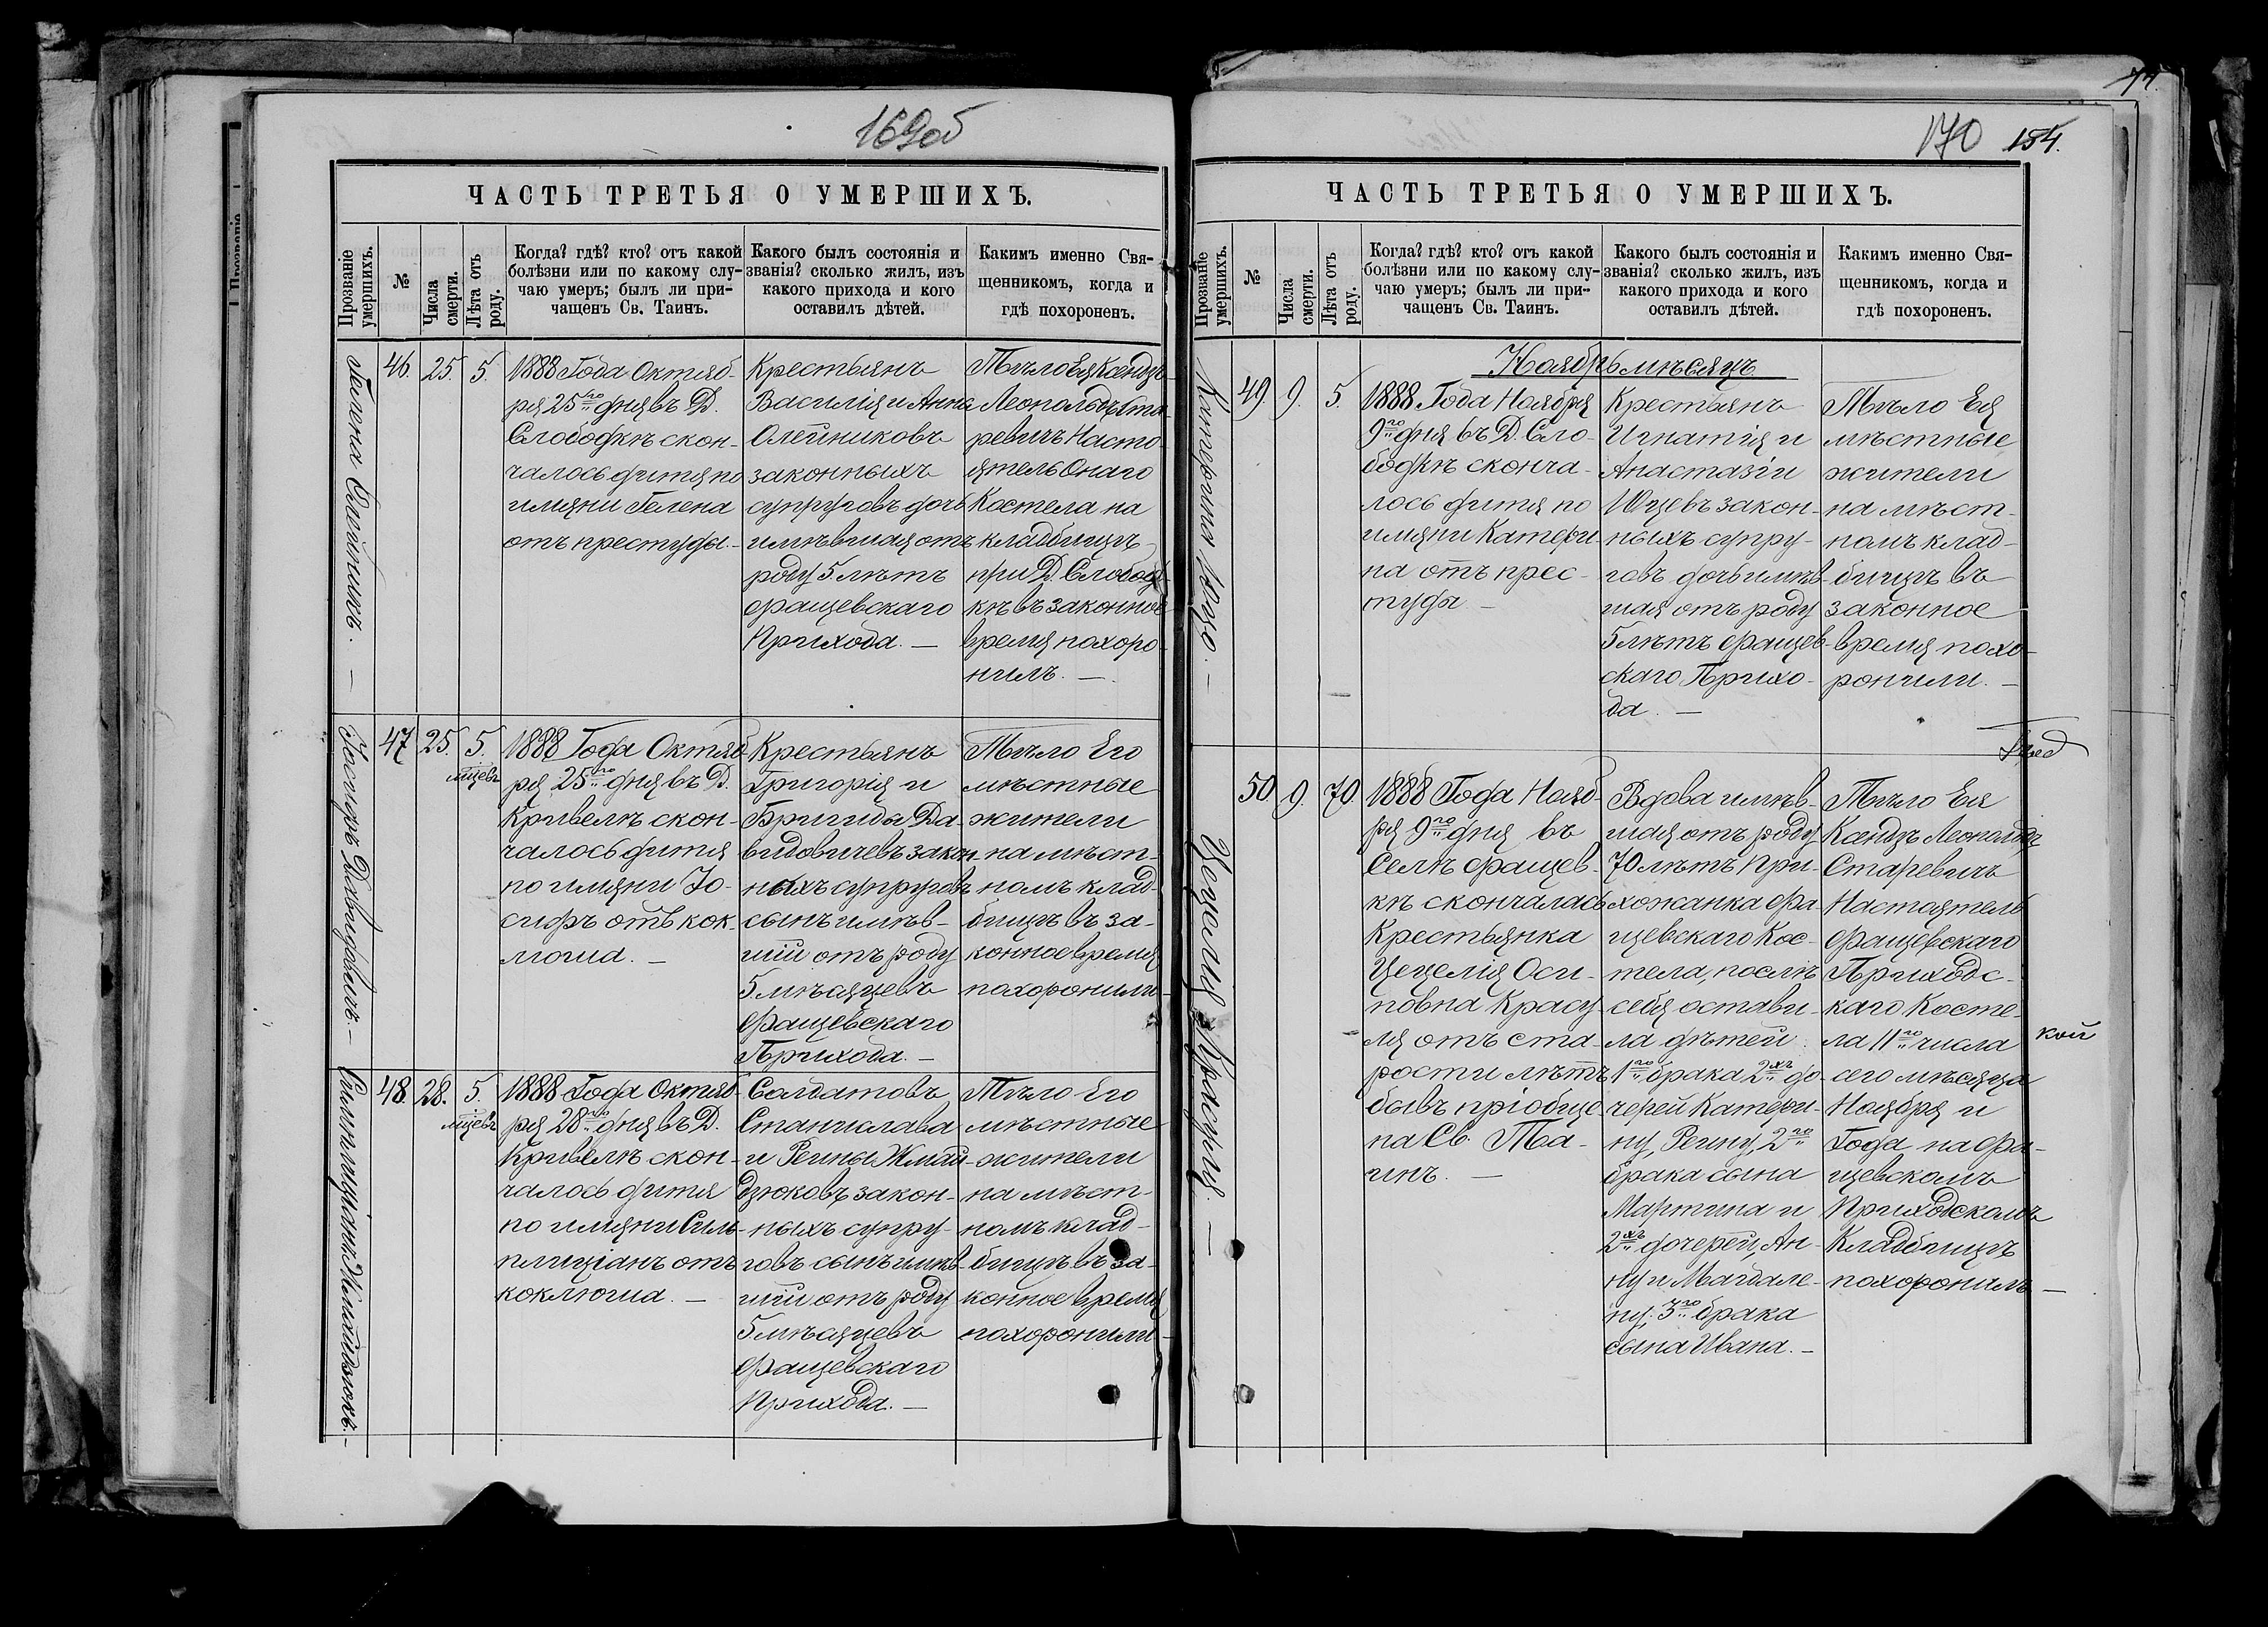 169об
ЧАСТЬ ТРЕТЬЯ О УМЕРШИХЪ.
Прозваніе умершихъ.
№
Числа смерти.
Лѣта отъ роду.
Когда? гдѣ? кто? отъ какой
болѣзни или по какому слу-
чаю умеръ; былъ ли при-
чащенъ Св. Таинъ.
Какого былъ состоянія и
званія? сколько жилъ, изъ
какого прихода и кого
оставилъ дѣтей.
Какимъ именно Свя-
щенникомъ, когда и
гдѣ похороненъ.
Гелена Олейникъ. —
46.
25.
5.
1888 Года Октяб-
ря 25го дня въ Д.
Слободкѣ скон-
чалось дитя по
имяни Гелена
отъ престуды. —
Крестьянъ
Василія и Анны
Олейниковъ
законныхъ
супруговъ дочь
имѣвшая отъ
роду 5 лѣтъ
Фащевскаго
Прихода. —
Тѣло Ея Ксендзъ
Леопольдъ Ста-
ревичъ Насто-
ятель Онаго
Костела на
кладбищѣ
при Д. Слобод-
кѣ въ законное
время похоро-
нилъ. —
Іосифъ Давидовичъ. —
47
25.
5.
мцевъ
1888 Года Октяб-
ря 25го дня въ Д.
Кривелѣ скон-
чалось дитя
по имяни Іо-
сифъ отъ кок-
люша. —
Крестьянъ
Григорія и
Бригиды Да-
видовичевъ закон-
ныхъ супруговъ
сынъ имѣв-
шій отъ роду
5 мѣсяцевъ
Фащевскаго
Прихода. —
Тѣло Его
мѣстные
жители
на мѣст-
номъ клад-
бищѣ въ за-
конное время
похоронили —
48.
28.
5.
мцевъ
1888 Года Октяб-
ря 28го дня въ Д.
Кривелѣ скон-
чалось дитя
по имяни Сим-
плиціанъ отъ
коклюша. —
Солдатовъ
Станислава
и Регины Жмай-
дзюковъ закон-
ныхъ супру-
говъ сынъ имѣв-
шій отъ роду
5 мѣсяцевъ
Фащевскаго
Прихода. —
Тѣло Его
мѣстные
жители
на мѣст-
номъ клад-
бищѣ въ за-
конное время
похоронили —
74.
170 154.
ЧАСТЬ ТРЕТЬЯ О УМЕРШИХЪ.
Прозваніе умершихъ.
№
Числа смерти.
Лѣта отъ роду.
Когда? гдѣ? кто? отъ какой
болѣзни или по какому слу-
чаю умеръ; былъ ли при-
чащенъ Св. Таинъ.
Какого былъ состоянія и
званія? сколько жилъ, изъ
какого прихода и кого
оставилъ дѣтей.
Какимъ именно Свя-
щенникомъ, когда и
гдѣ похороненъ.
Ноябрь мѣсяцъ
49
9.
5.
1888 Года Ноября
9го дня въ Д. Сло-
бодкѣ сконча-
лось дитя по
имяни Катери-
на отъ прес-
туды —
Крестьянъ
Игнатія и
Анастазіи
Юцевъ закон-
ныхъ супру-
говъ дочь имѣв-
шая отъ роду
5 лѣтъ Фащев-
скаго Прихо-
да. —
Тѣло Ея
мѣстные
жители
на мѣст-
номъ клад-
бищѣ въ
законное
время похо-
ронили. —
50
9.
70.
1888 Года Нояб-
ря 9го дня въ
Селѣ Фащев-
кѣ скончалась
Крестьянка
Цецелія Оси-
повна Красу-
ля отъ ста-
рости лѣтъ
бывъ пріобще-
на Св. Та-
инъ. —
Вдова имѣв-
шая отъ роду
70 лѣтъ При-
хожанка Фа-
щевскаго Кос-
тела, послѣ
себя остави-
ла дѣтей
1го брака 2хъ до-
черей Катери-
ну, Регину, 2го
брака сына
Мартина и
2хъ дочерей, Ан-
ну и Магдале-
ну; 3го брака
сына Ивана. —
Тѣло Ея
Ксендзъ Леопольдъ
Старевичъ
Настоятель
Фащевскаго
Приходс-
каго Косте-
ла 11го числа
сего мѣсяца
Ноября и
Года на Фа-
щевскомъ
Приходскомъ
Кладбищѣ
похоронилъ —
кой